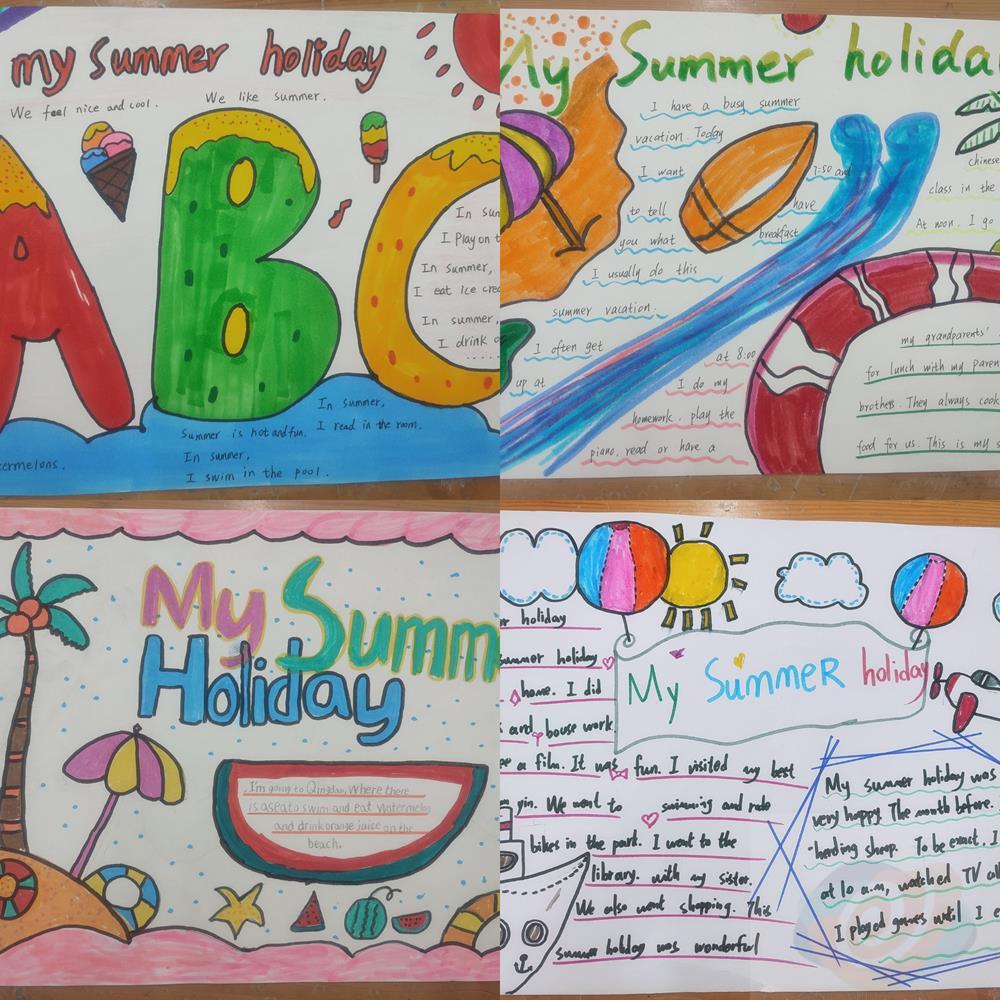 my Summer holiday
We feel nice and cool.
We like summer.
ABC
In sum
I Play on t
In Summer,
I eat Ice cre
In summer
I drink o
......
In summer,
I read in the room.
Summer is hot and fun.
In sunner,
I swim in the pool.
termelons.
My Summer holiday
I have a busy summer
vacation. Today
I want
to tell
you what
I usually do this
summer vacation.
I often get
up at
7:50 and
have
breakfast
at 8:00
I do my
homework, play the
piano, read or have a
chinese
class in the
At noon, I go
my grandparents'
for lunch with my paren
brothers. They always cook
food for us. This is my s
My Summ
Holiday
I'm going to Qingdao, Where there
is a sea to swim and eat Watermelon
and drink orange juice on the
beach.
My Summer holiday
holiday
summer holiday
home. I did
and house work.
a film. It was fun. I visited my best
gin. We went to swimming and rode
bikes in the park. I went to the
library. with my sister.
We also went shopping. This
summer holiday was wonderful
My summer holiday was
very happy. The month before.
"herding sheep. To be exact. I
at 10 a.m, watched TV al
I played games until I e